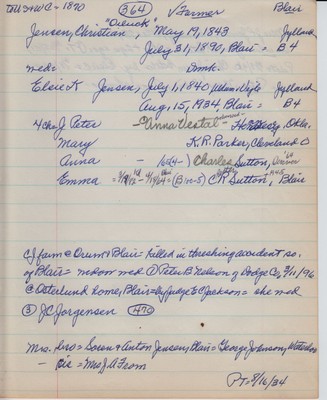 1890 364 Farmer Blair
"Diduck"
Jensen, Christian, May 19, 1843 Jylland
July 31, 1890, Blair = B4
med = Dmk.
Elsie K Jensen, July 1, 1840 Jylland
Aug. 15, 1934, Blair = B4
4 chn J Peter - Anna Vestal - Okla.
Mary K. R. Parker, Cleveland O
Anna - Charles Sutton,
Emma = (B:n-5) CR Sutton, Blair
CJ farm @ Orum + Blair = killed in threshing accident so.
of Blair = widow med ② Peter B Nelson of Dodge Co, 9/11/96
@ Osterlund home, Blair = by Judge EC Jackson = she med
③ JC Jorgensen 470
Mrs. bro = Soren & Anton Jensen, Blair = George Johnson, Waterloo
- sis = Mrs J A From
PT = 8/16/34